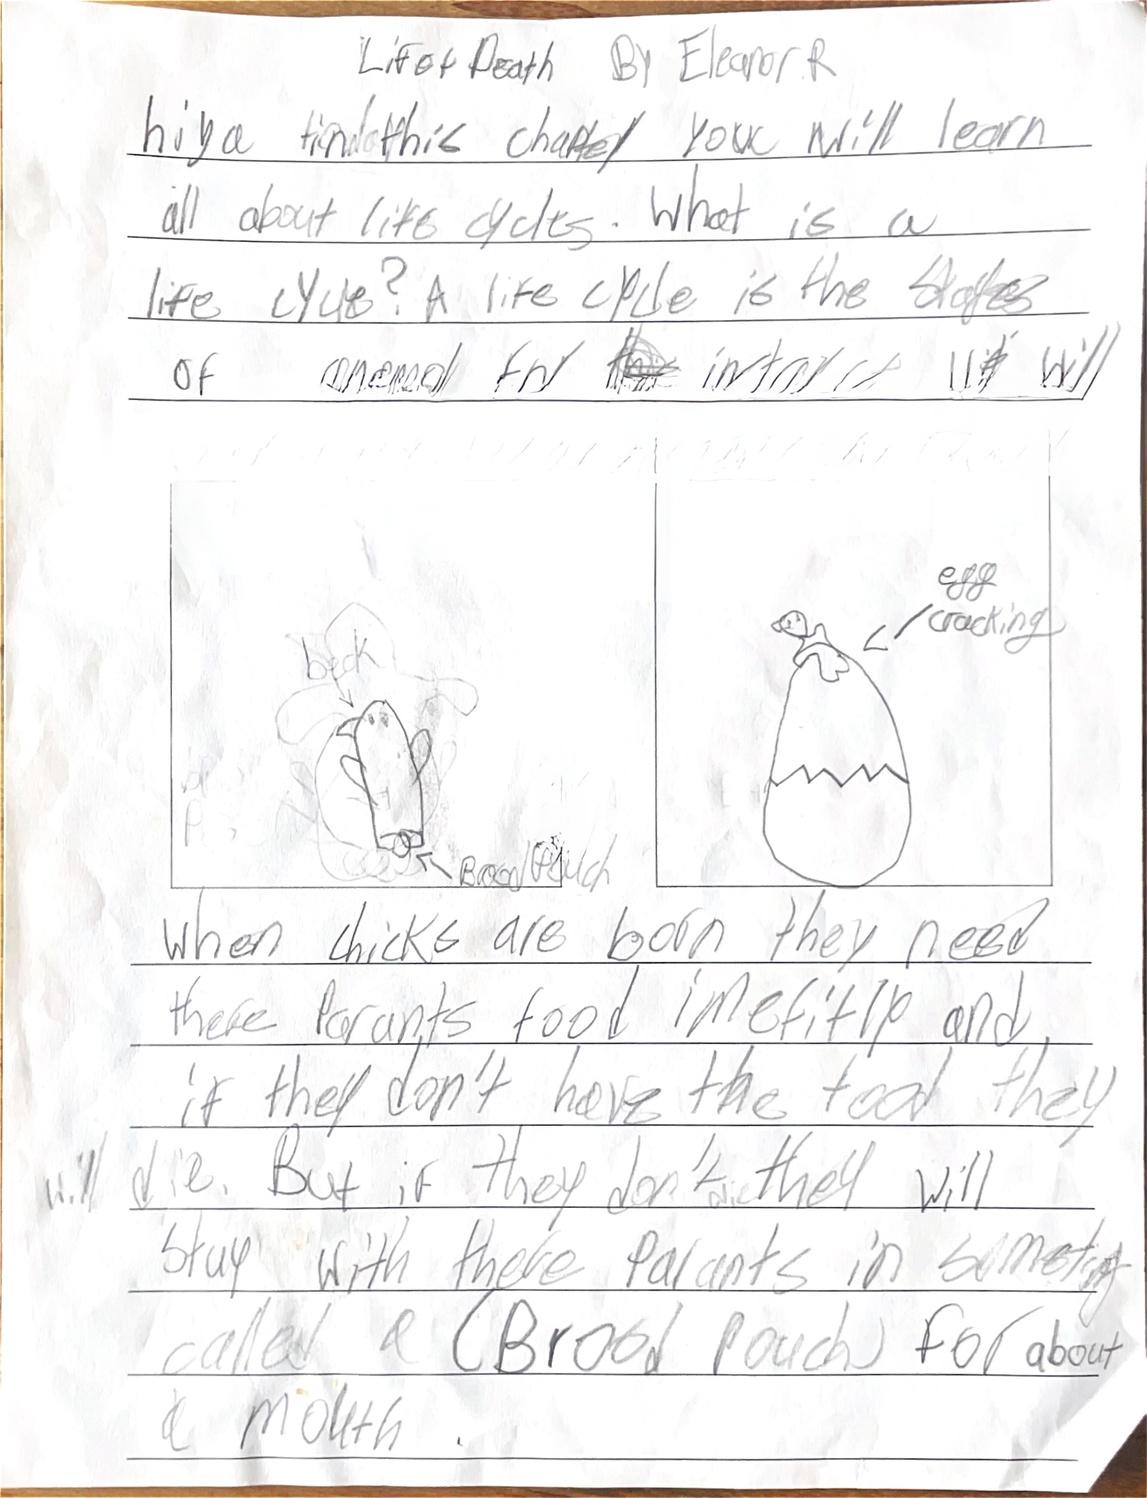 Lif of Death By Eleanor R
hiya in this chapter you will learn
all about life cycles. What is a
life cycle? A life cycle is the stages
of anemal for instance it will
beck
egg
cracking
Brood Pouch
when chicks are born they need
there Parants food imefitly and
if they don't have the food they
will die. But if they don't die they will
stay with there Parants in someting
called a (Brood Pouch) For about
a mouth.